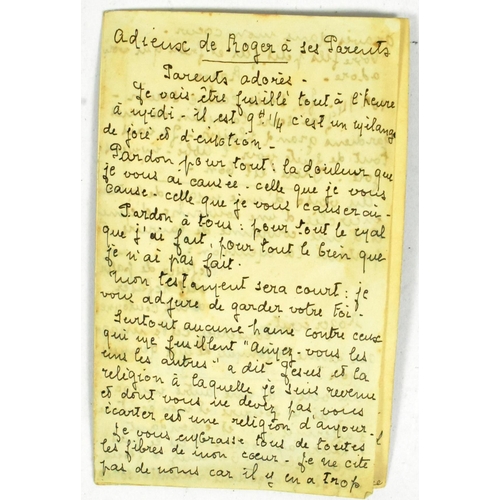 Adieux de Roger à ses Parents
Parents adorés -
Je vais être fusillé tout à l'heure
à midi - il est 9h 1/4 c'est un mélange
de joie et d'émotion -
Pardon pour tout : la douleur que
je vous ai causée - celle que je vous
cause - celle que je vous causerai -
Pardon à tous : pour tout le mal
que j'ai fait, pour tout le bien que
je n'ai pas fait.
Mon testament sera court : je
vous adjure de garder votre foi -
Surtout aucune haine contre ceux
qui me fusillent "Aimez-vous les
uns les autres" a dit Jésus et la
religion à laquelle je suis revenu
et dont vous ne devez pas vous
écarter est une religion d'amour -
Je vous embrasse tous de toutes
les fibres de mon cœur - Je ne cite
pas de noms car il y en a trop